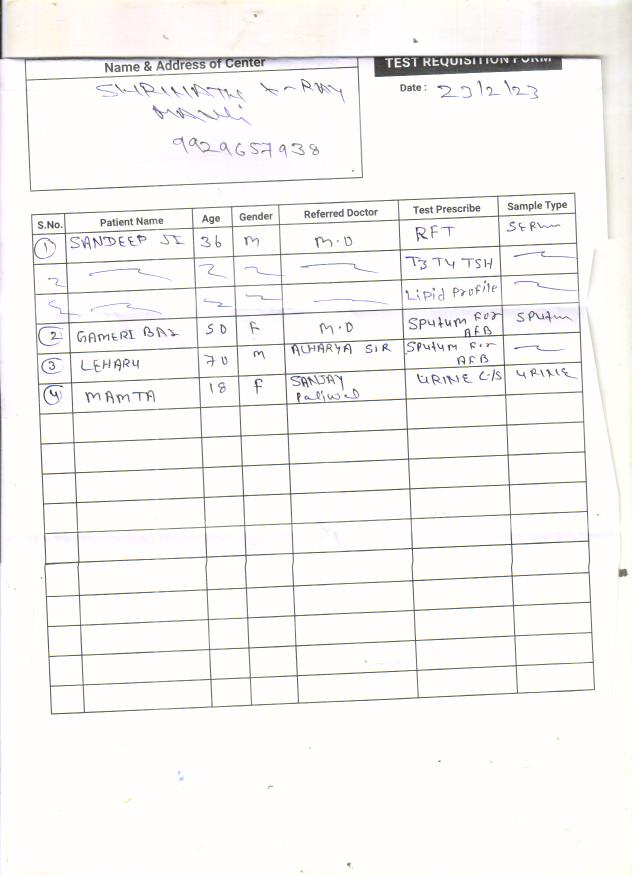 Name & Address of Center
TEST REQUISITION FORM
SHRINATH X-RAY
MAVLI
9929657938
Date: 23/2/23
S.No. Patient Name Age Gender Referred Doctor Test Prescribe Sample Type
1 SANDEEP JI 36 M M.D RFT SERUM
T3 T4 TSH
Lipid Profile
2 GAMERI BAI 50 F M.D Sputum For AFB Sputum
3 LEHARU 70 M ACHARYA SIR Sputum For AFB
4 MAMTA 18 F SANJAY Paliwal URINE C/S URINE